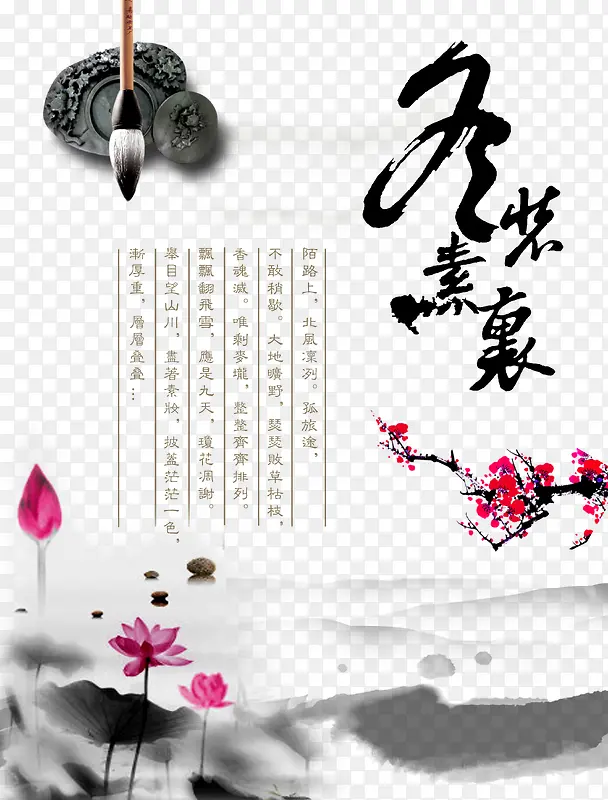 冬
装
素
裏
陌路上，北風凜冽。孤旅途，
不敢稍歇。大地曠野，瑟瑟敗草枯枝，
香魂滅。唯剩麥壠，整整齊齊排列。
飄飄翻飛雪，應是九天，瓊花凋謝。
舉目望山川，盡著素妝，披蓋茫茫一色，
漸厚重，層層叠叠…